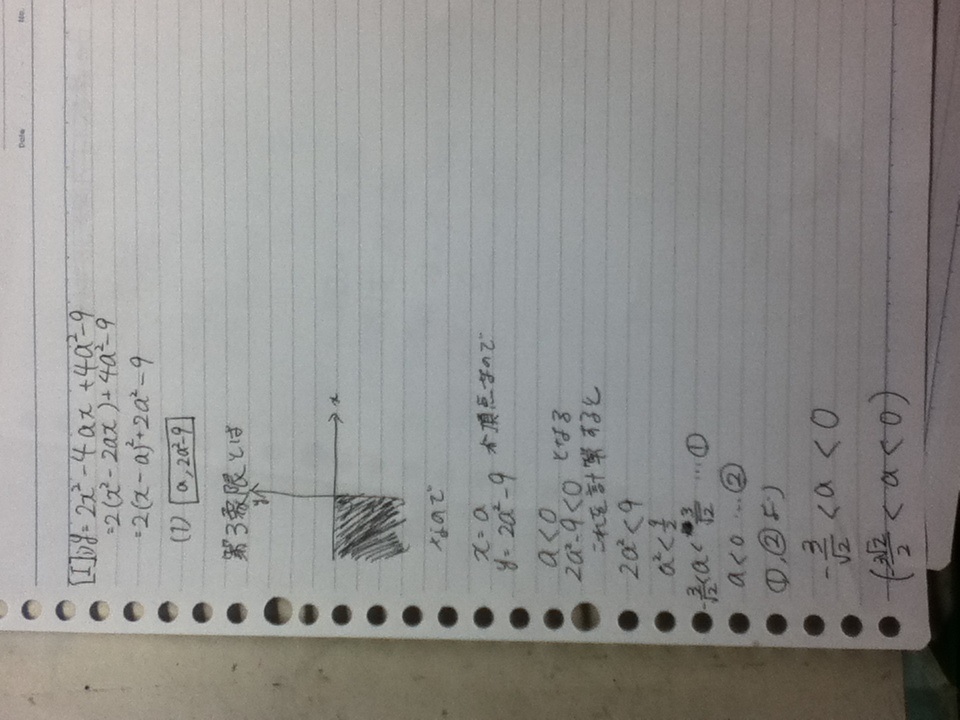 No.
Date
[1] y=2x²-4ax+4a²-9
=2(x²-2ax)+4a²-9
=2(x-a)²+2a²-9
(1) a, 2a²-9
第3象限とは
y
x
なので
x=a
y=2a²-9 が頂点なので
a<0
2a²-9<0 となる
これを計算すると
2a²<9
a²<9/2
-3/√2<a<3/√2 …①
a<0 …②
①,②より
-3/√2<a<0
(-3√2/2<a<0)